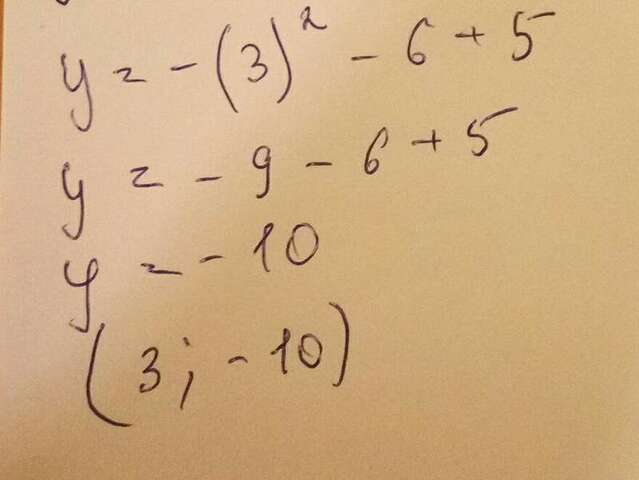 y = -(3)² - 6 + 5
y = - 9 - 6 + 5
y = - 10
(3; - 10)